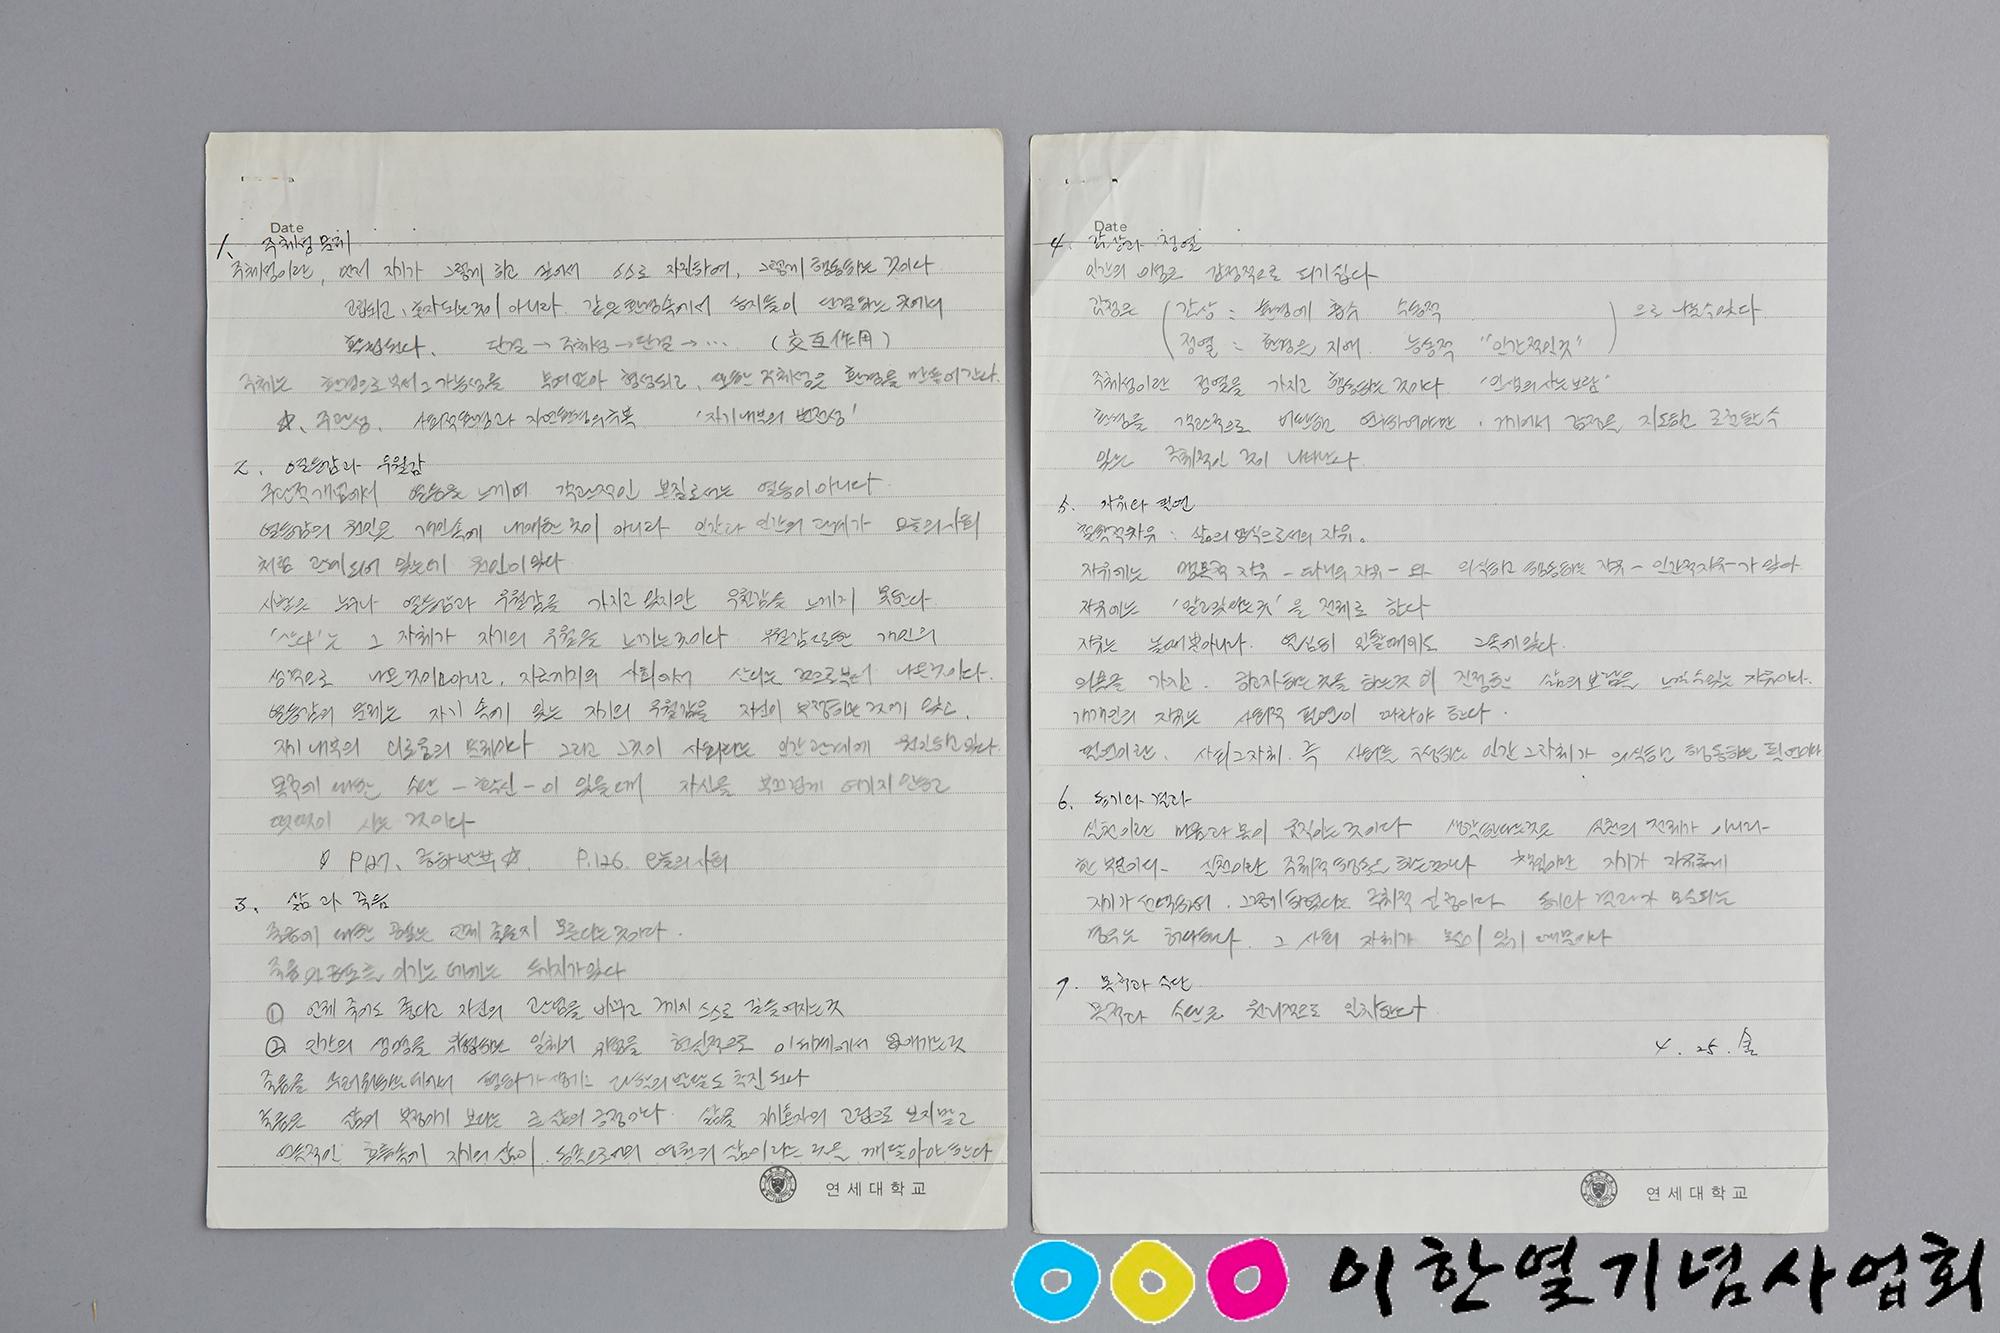 Date
1. 주체성 문제
주체성이란, 먼저 자기가 그렇게 하고 싶어서 스스로 자진하여, 그렇게 행동하는 것이다
고립되고, 혼자되는 것이 아니라 같은 환경속에서 동지들이 단결하는 것에서
확립된다. 단결 → 주체성 → 단결 → … (交互作用)
주체는 환경으로부터 그 가능성을 부여받아 형성되고, 또한 주체성은 환경을 만들어간다.
☆. 주관성. 사회적환경과 자연환경의 극복 '자기내부의 변전성'
2. 열등감과 우월감
주관적개념에서 열등을 느끼며 객관적인 본질로서는 열등이 아니다.
열등감의 원인은 개인속에 내재한 것이 아니라 인간과 인간의 관계가 오늘의 사회
처럼 관계되어 있는데 원인이 있다
사람은 누구나 열등감과 우월감을 가지고 있지만 우월감을 느끼지 못한다.
'산다'는 그 자체가 자기의 우월을 느끼는 것이다 우월감 또한 개인의
성격으로 나온것이 아니고, 지금까지의 사회에서 산다는 것으로부터 나온것이다.
열등감의 문제는 자기 속에 있는 자기의 우월감을 자신이 부정하는 것에 있고,
자기내부의 괴로움의 문제이다 그리고 그것이 사회라는 인간관계에 원인하고 있다.
목적에 대한 수단 - 확신 - 이 있을 때 자신을 부끄럽게 여기지 않고
떳떳이 사는 것이다
P127, 중하반부 ☆. P.126. 오늘의 사회
3. 삶과 죽음
죽음에 대한 공포는 언제 죽을지 모른다는 것이다.
죽음의 공포를 이기는 데에는 두가지가 있다
① 언제 죽어도 좋다고 자신의 관념을 바꾸고 거기에 스스로 길들여지는 것
② 인간의 생명을 위협하는 일체의 위험을 현실적으로 이세계에서 없애가는 것
죽음을 두려워하는데에서 평화가 생기는 과학의 발달도 촉진된다
죽음은 삶의 부정이기 보다는 큰 삶의 긍정이다. 삶을 자기혼자의 고립으로 보지말고
연속적인 흐름속에 자기의 삶이 영속으로서의 영원한 삶이라는 것을 깨달아야 한다
연세대학교
Date
4. 감상과 정열
인간의 이성은 감정적으로 되기 쉽다
감정은 (감상 : 환경에 흡수 수동적
정열 : 환경을 지배. 능동적 "인간적인것") 으로 나눌수있다.
주체성이란 정열을 가지고 행동하는 것이다 '인생의 사는 보람'
환경을 객관적으로 비판하고 연구하여야만. 거기에서 감정을 지도하고 조절할 수
있는 주체적인 것이 나타난다.
5. 자유와 필연
절대적자유 : 삶의 형식으로서의 자유.
자유에는 맹목적 자유 - 타인의 자유 - 와 의식하고 행동하는 자유 - 인간적자유 - 가 있다
자유에는 '알고있다는것'을 전제로 한다
자유는 놀때뿐아니라. 열심히 일할때에도 그속에 있다.
의욕을 가지고. 하고자하는 것을 하는것이 진정한 삶의 보람을 느낄수있는 자유이다.
개개인의 자유는 사회적 필연이 따라야 한다.
필연이란, 사회그자체. 즉 사회를 구성하는 인간 그자체가 의식하고 행동하는 필연이다
6. 동기와 결과
실천이란 마음과 몸이 움직이는 것이다 생각한다는것은 실천의 전제가 아니라-
한 부분이다- 실천이란 주체적 행동을 하는것이다 책임이란 자기가 자유롭게
자기가 선택하여. 그렇게 하였다는 주체적 심정이다. 동기와 결과가 모순되는
경우는 허다하다. 그 사회 자체가 모순이 있기 때문이다
7. 목적과 수단
목적과 수단은 원리적으로 일치한다
4. 25. 金
연세대학교
이한열기념사업회